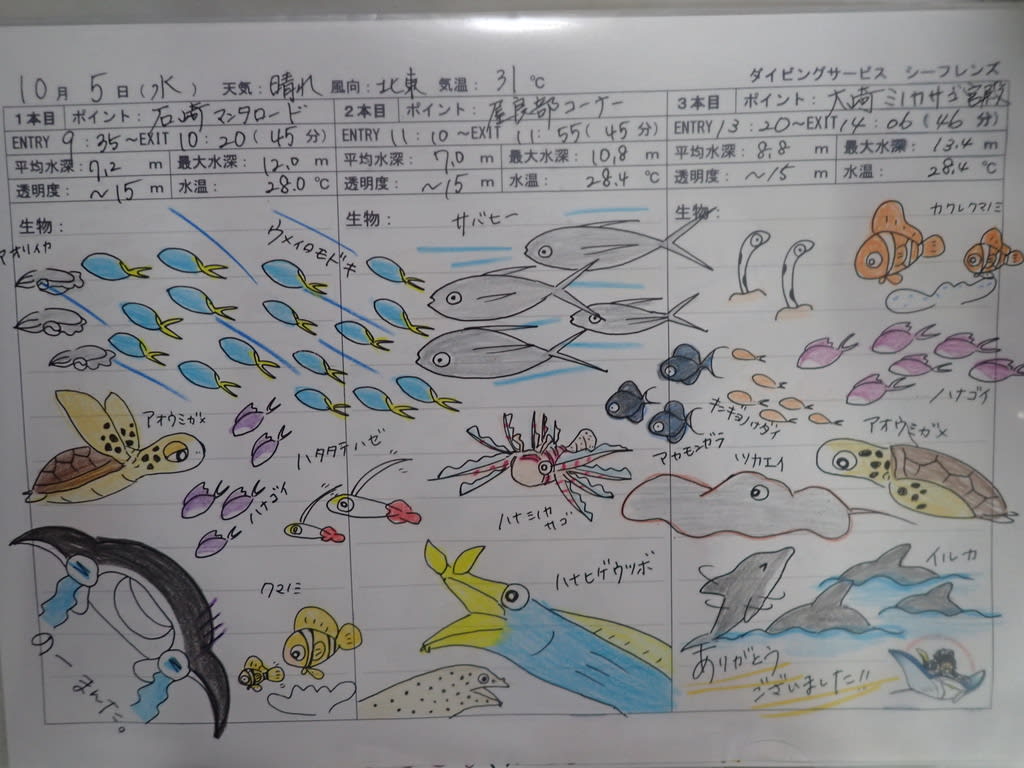 10月 5日(水) 天気:晴れ 風向:北東 気温:31℃
ダイビングサービス シーフレンズ
1本目 ポイント:石崎マンタロード
ENTRY 9:35~EXIT 10:20(45分)
平均水深:7.2m 最大水深:12.0m
透明度:~15m 水温:28.0℃
生物:
アオリイカ
ウメイロモドキ
アオウミガメ
ハタタテハゼ
ハナゴイ
クマノミ
まんた。
2本目 ポイント:屋良部コーナー
ENTRY 11:10~EXIT 11:55(45分)
平均水深:7.0m 最大水深:10.8m
透明度:~15m 水温:28.4℃
生物:
サバヒー
アカモンガラ
ハナミノカサゴ
ハナヒゲウツボ
3本目 ポイント:大崎ミノカサゴ宮殿
ENTRY 13:20~EXIT 14:06(46分)
平均水深:8.8m 最大水深:13.4m
透明度:~15m 水温:28.4℃
生物:
カクレクマノミ
ハナゴイ
キンギョハナダイ
アオウミガメ
ツカエイ
イルカ
ありがとう
ございました!!